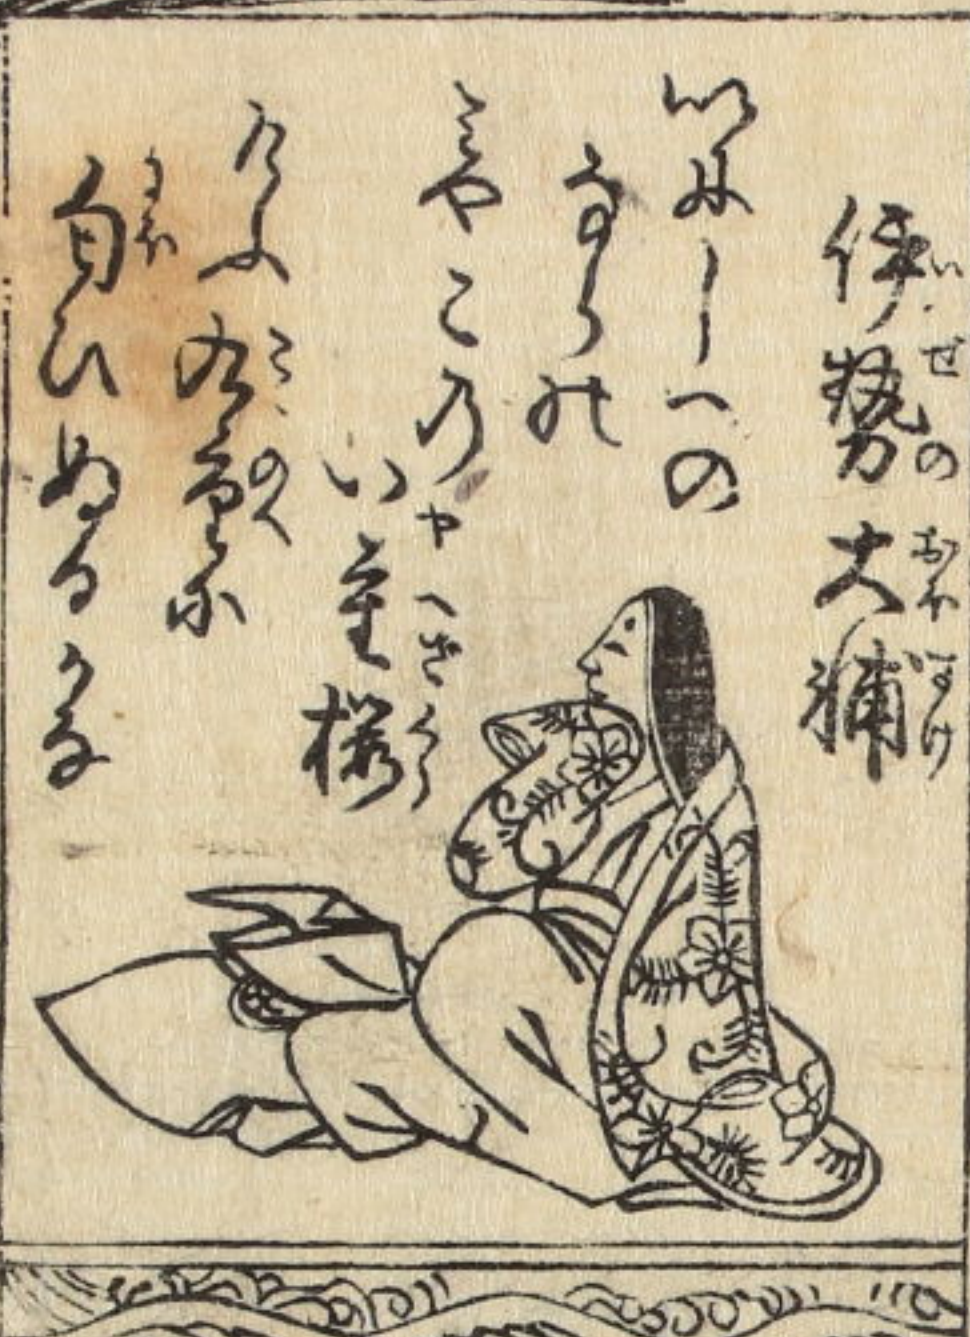 伊勢大輔
いぜのおほすけ
いにしへの
ならの
みやこの
八重桜
やへざくら
けふ九重に
こゝのへ
匂ひぬるかな
にほ